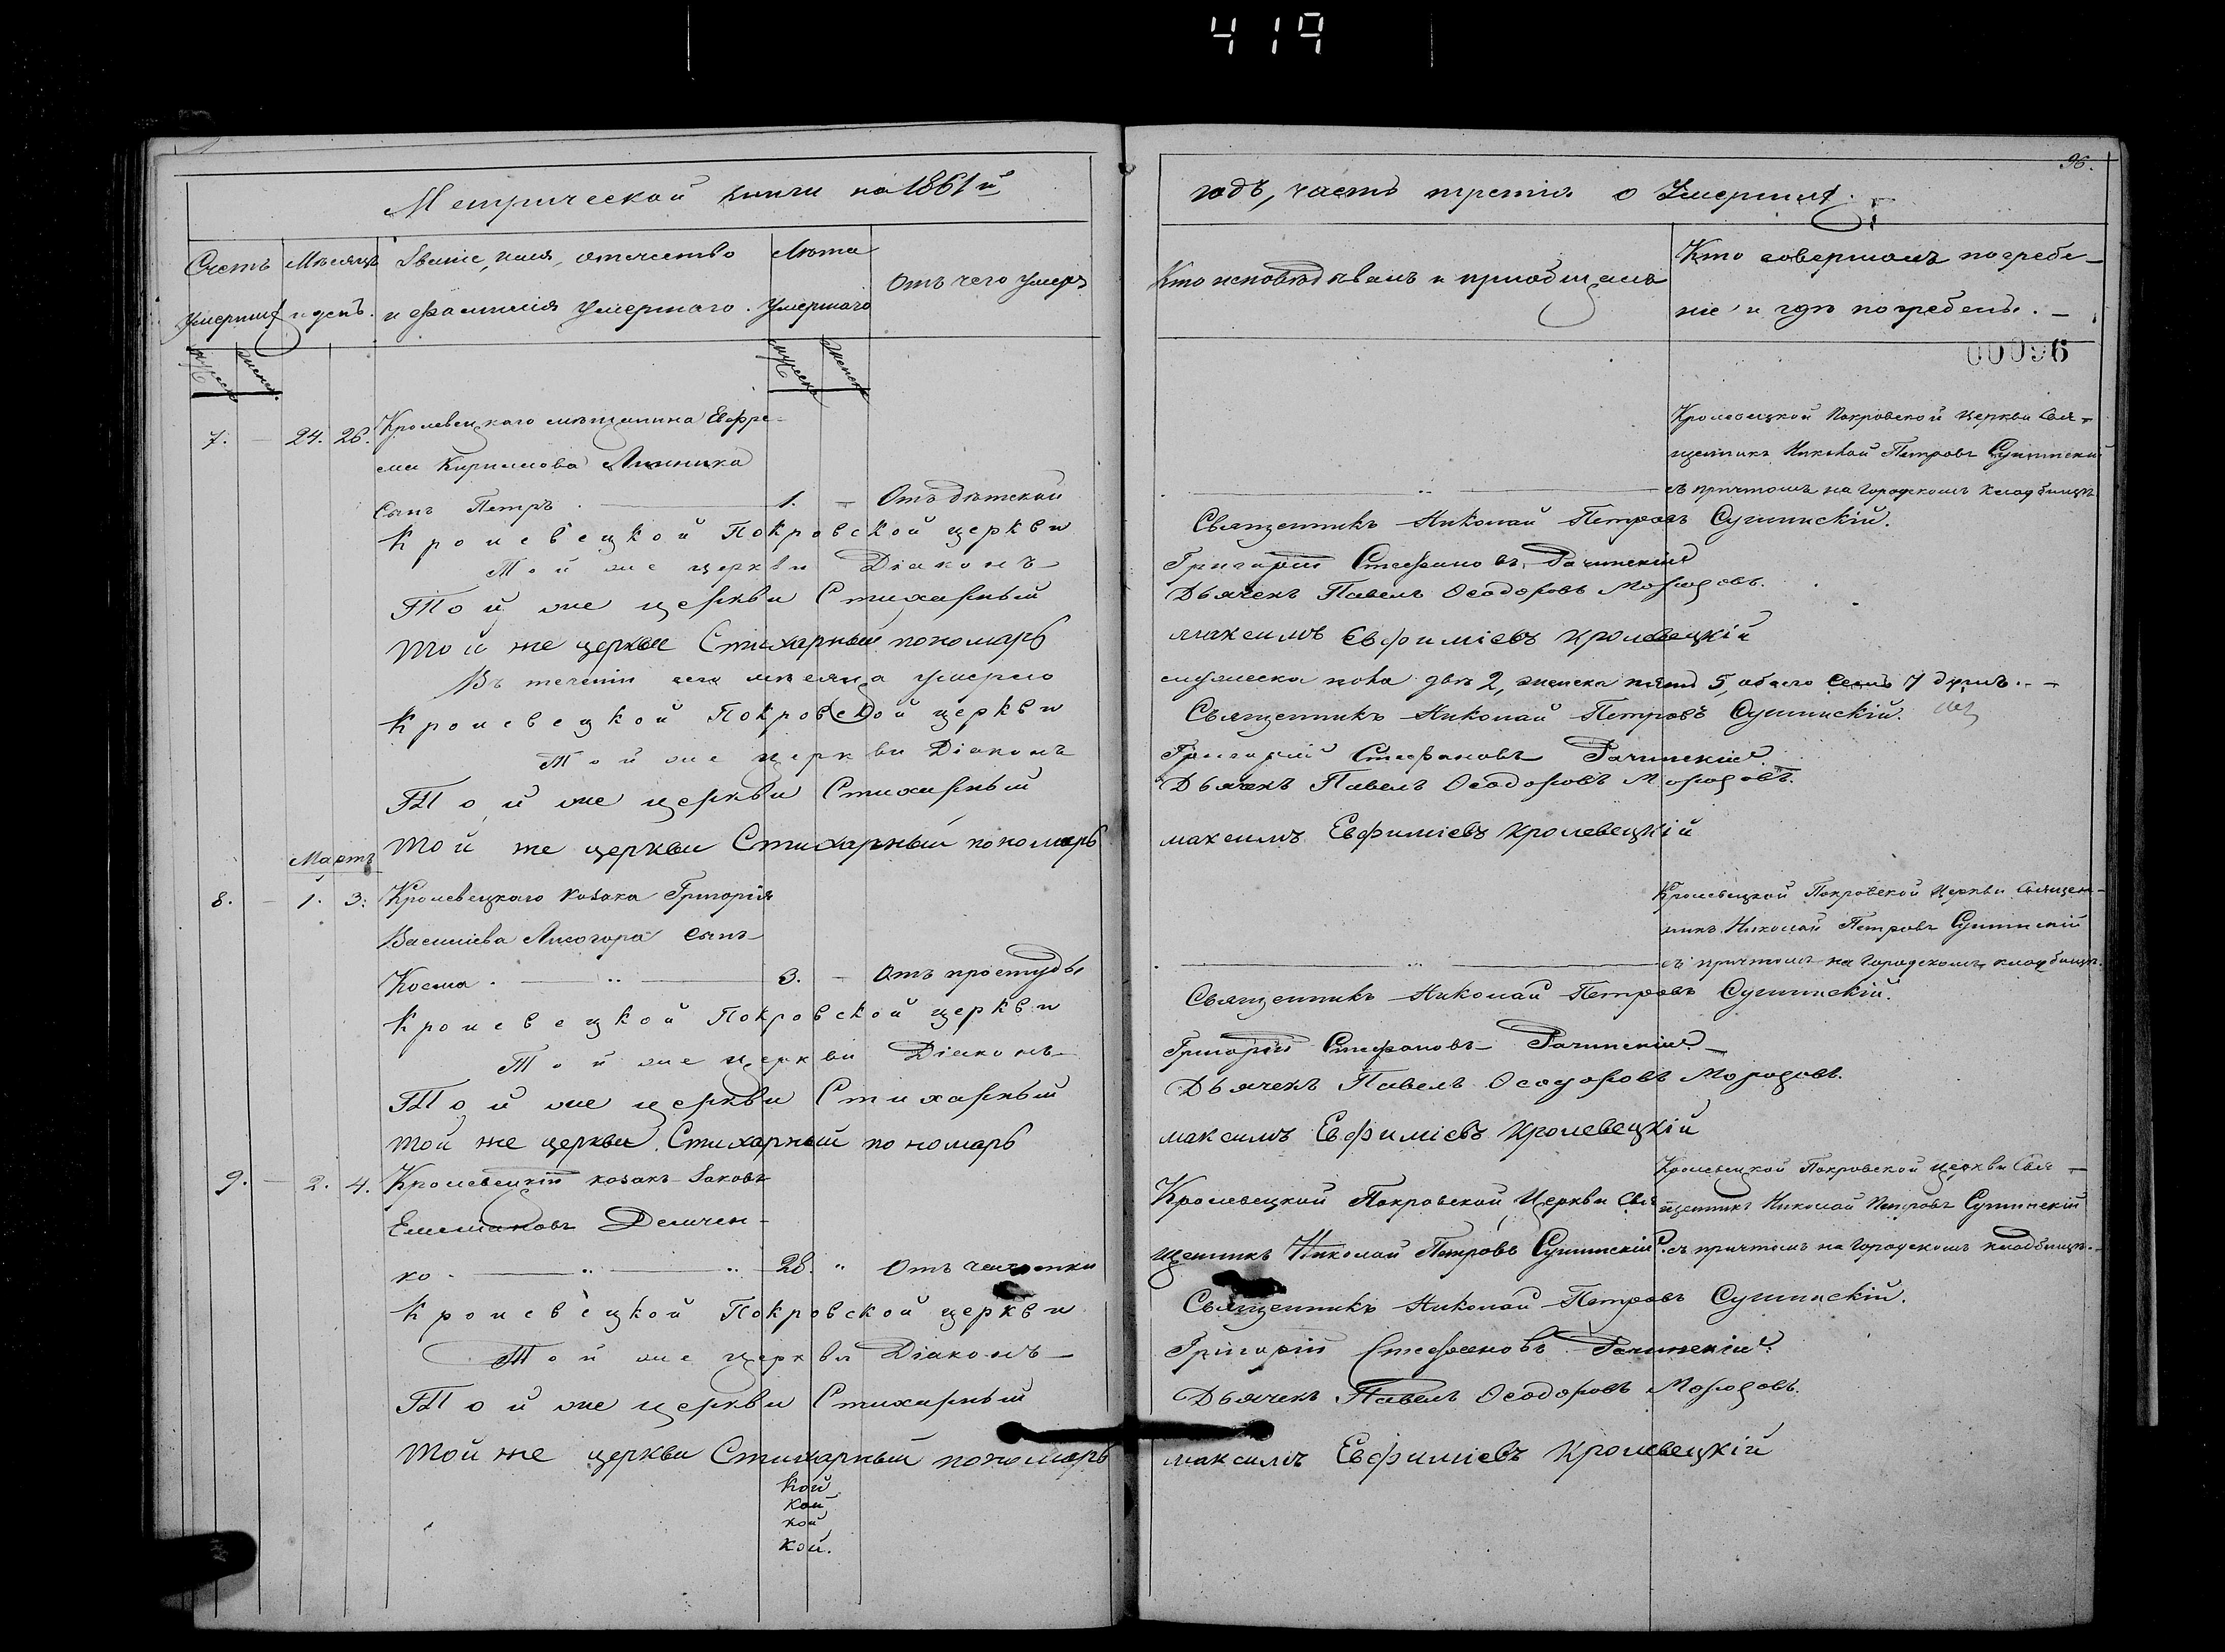 419
Метрической книги на 1861й
Счетъ
Умершихъ
Мѣсяцъ
и день.
Званіе, имя, отечество
и фамилія умершаго.
Лѣта
Умершаго
Отъ чего умеръ
мужеск
женск.
мужеска
женска
7. — 24. 26. Кролевецкаго мѣщанина Ефре-
ма Кирилова Линника
Сынъ Петръ. — 1. — Отъ дѣтской
Кролевецкой Покровской церкви
Той же церкви Діаконъ
Той же церкви Стихарный
той же церкви Стихарный пономарь
Въ теченіи сего мѣсяца умерло
Кролевецкой Покровской церкви
Той же церкви Діаконъ
Той же церкви Стихарный
той же церкви Стихарный пономарь
Мартъ
8. — 1. 3. Кролевецкаго козака Григорія
Василіева Лисогора сынъ
Косма. — 3. — Отъ простуды
Кролевецкой Покровской церкви
Той же церкви Діаконъ
Той же церкви Стихарный
той же церкви Стихарный пономарь
9. — 2. 4. Кролевецкій козакъ Іаковъ
Емеліановъ Демчен-
ко. — 28. " Отъ чахотки
Кролевецкой Покровской церкви
Той же церкви Діаконъ
Той же церкви Стихарный
той же церкви Стихарный пономарь
кой
кой
кой
кой.
96.
годъ, часть третія о Умершихъ.
Кто исповѣдывалъ и пріобщалъ
Кто совершалъ погребе-
ніе и гдѣ погребены. —
00096
Кролевецкой Покровской Церкви Свя-
щенникъ Николай Петровъ Сушинскій
съ причтомъ на Городскомъ кладбищѣ
Священникъ Николай Петровъ Сушинскій.
Григорій Стефановъ Рачинскій
Дьячекъ Павелъ Ѳеодоровъ Мороговъ.
максимъ Евфиміевъ кролевецкій
мужеска пола двѣ 2, женска пять 5, обоего семь 7 душъ. —
Священникъ Николай Петровъ Сушинскій.
Григорій Стефановъ Рачинскій
Дьячекъ Павелъ Ѳеодоровъ Мороговъ.
максимъ Евфиміевъ кролевецкій
Кролевецкой Покровской Церкви Священ-
никъ Николай Петровъ Сушинскій
съ причтомъ на Городскомъ кладбищѣ.
Священникъ Николай Петровъ Сушинскій.
Григорій Стефановъ Рачинскій
Дьячекъ Павелъ Ѳеодоровъ Мороговъ.
максимъ Евфиміевъ кролевецкій
Кролевецкой Покровской Церкви Свя
щенникъ Николай Петровъ Сушинскій
Кролевецкой Покровской церкви Свя-
щенникъ Николай Петровъ Сушинскій
съ причтомъ на Городскомъ кладбищѣ.
Священникъ Николай Петровъ Сушинскій.
Григорій Стефановъ Рачинскій
Дьячекъ Павелъ Ѳеодоровъ Мороговъ.
максимъ Евфиміевъ кролевецкій